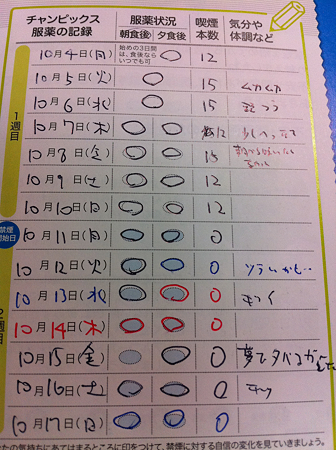 チャンピックス 服薬の記録 服薬状況 朝食後 夕食後 喫煙本数 気分や体調など
1週目
10月4日(月) 始めの3日間は、食後ならいつでも可 12
10月5日(火) 15 ムカムカ
10月6日(水) 15
10月7日(木) 12
10月8日(金) 15
10月9日(土) 12
10月10日(日) 12
禁煙開始日 10月11日(月) 0
2週目
10月12日(火) 0 ツライかも…
10月13日(水) 0 キツイ
10月14日(木) 0
10月15日(金) 0 夢で
10月16日(土) 0
10月17日(日) 0
たの気持ちにあてはまるところに印をつけて、禁煙に対する自信の変化を見ていきましょう。